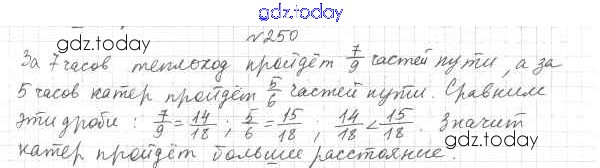 gdz.today
№250
gdz.today gdz.today
За 7 часов теплоход пройдёт 7/9 частей пути, а за
5 часов катер пройдёт 5/6 частей пути. Сравним
эти дроби: 7/9 = 14/18; 5/6 = 15/18; 14/18 < 15/18. Значит
катер пройдёт большее расстояние.
gdz.today gdz.today